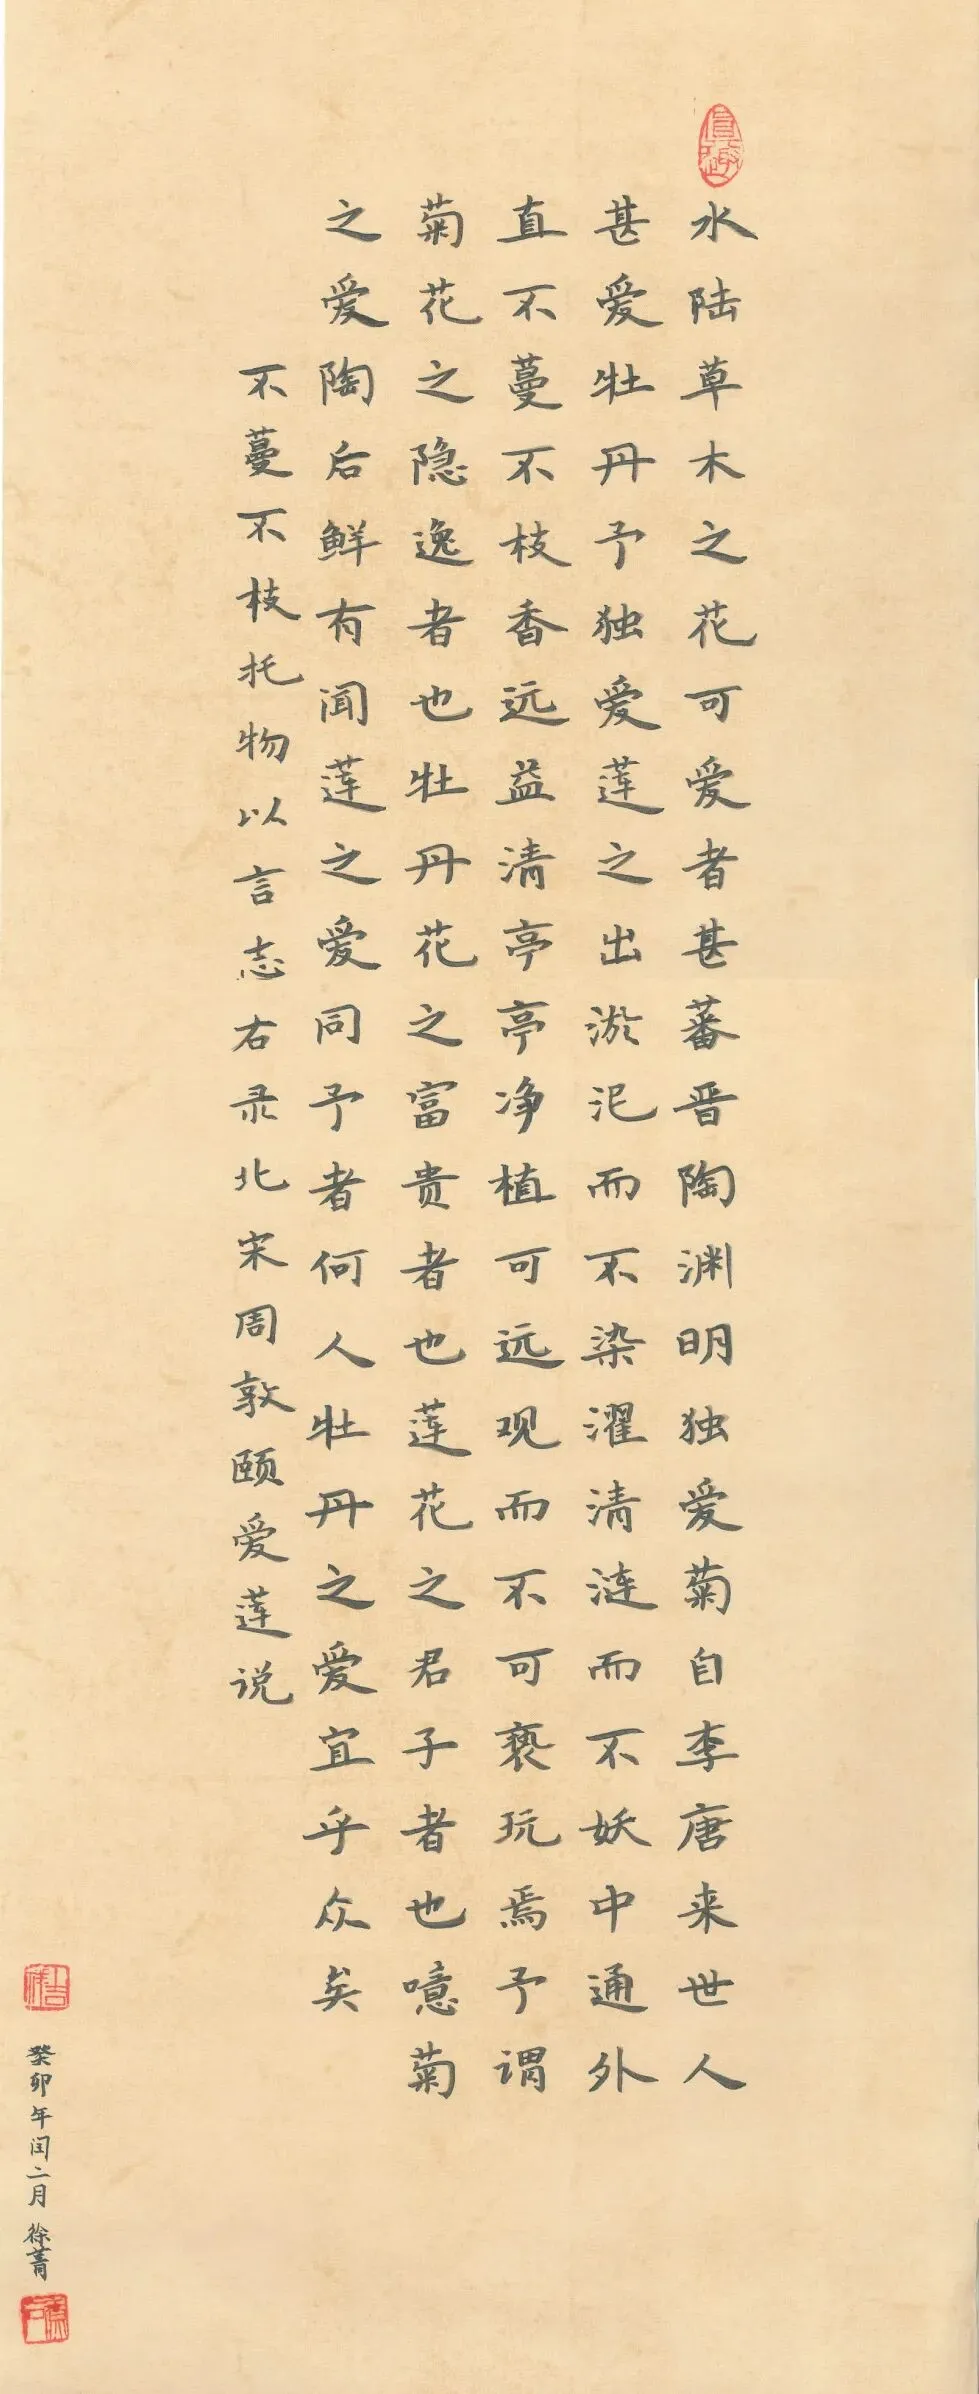 水陆草木之花可爱者甚蕃晋陶渊明独爱菊自李唐来世人
甚爱牡丹予独爱莲之出淤泥而不染濯清涟而不妖中通外
直不蔓不枝香远益清亭亭净植可远观而不可亵玩焉予谓
菊花之隐逸者也牡丹花之富贵者也莲花之君子者也噫菊
之爱陶后鲜有闻莲之爱同予者何人牡丹之爱宜乎众矣
不蔓不枝托物以言志右录北宋周敦颐爱莲说
癸卯年闰二月徐菁